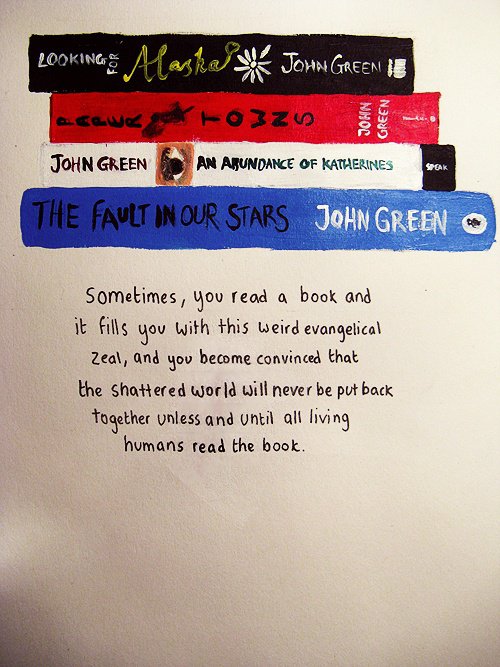 LOOKING FOR Alaska JOHN GREEN
PAPER TOWNS JOHN GREEN
JOHN GREEN AN ABUNDANCE OF KATHERINES SPEAK
THE FAULT IN OUR STARS JOHN GREEN
Sometimes, you read a book and
it fills you with this weird evangelical
zeal, and you become convinced that
the shattered world will never be put back
together unless and until all living
humans read the book.